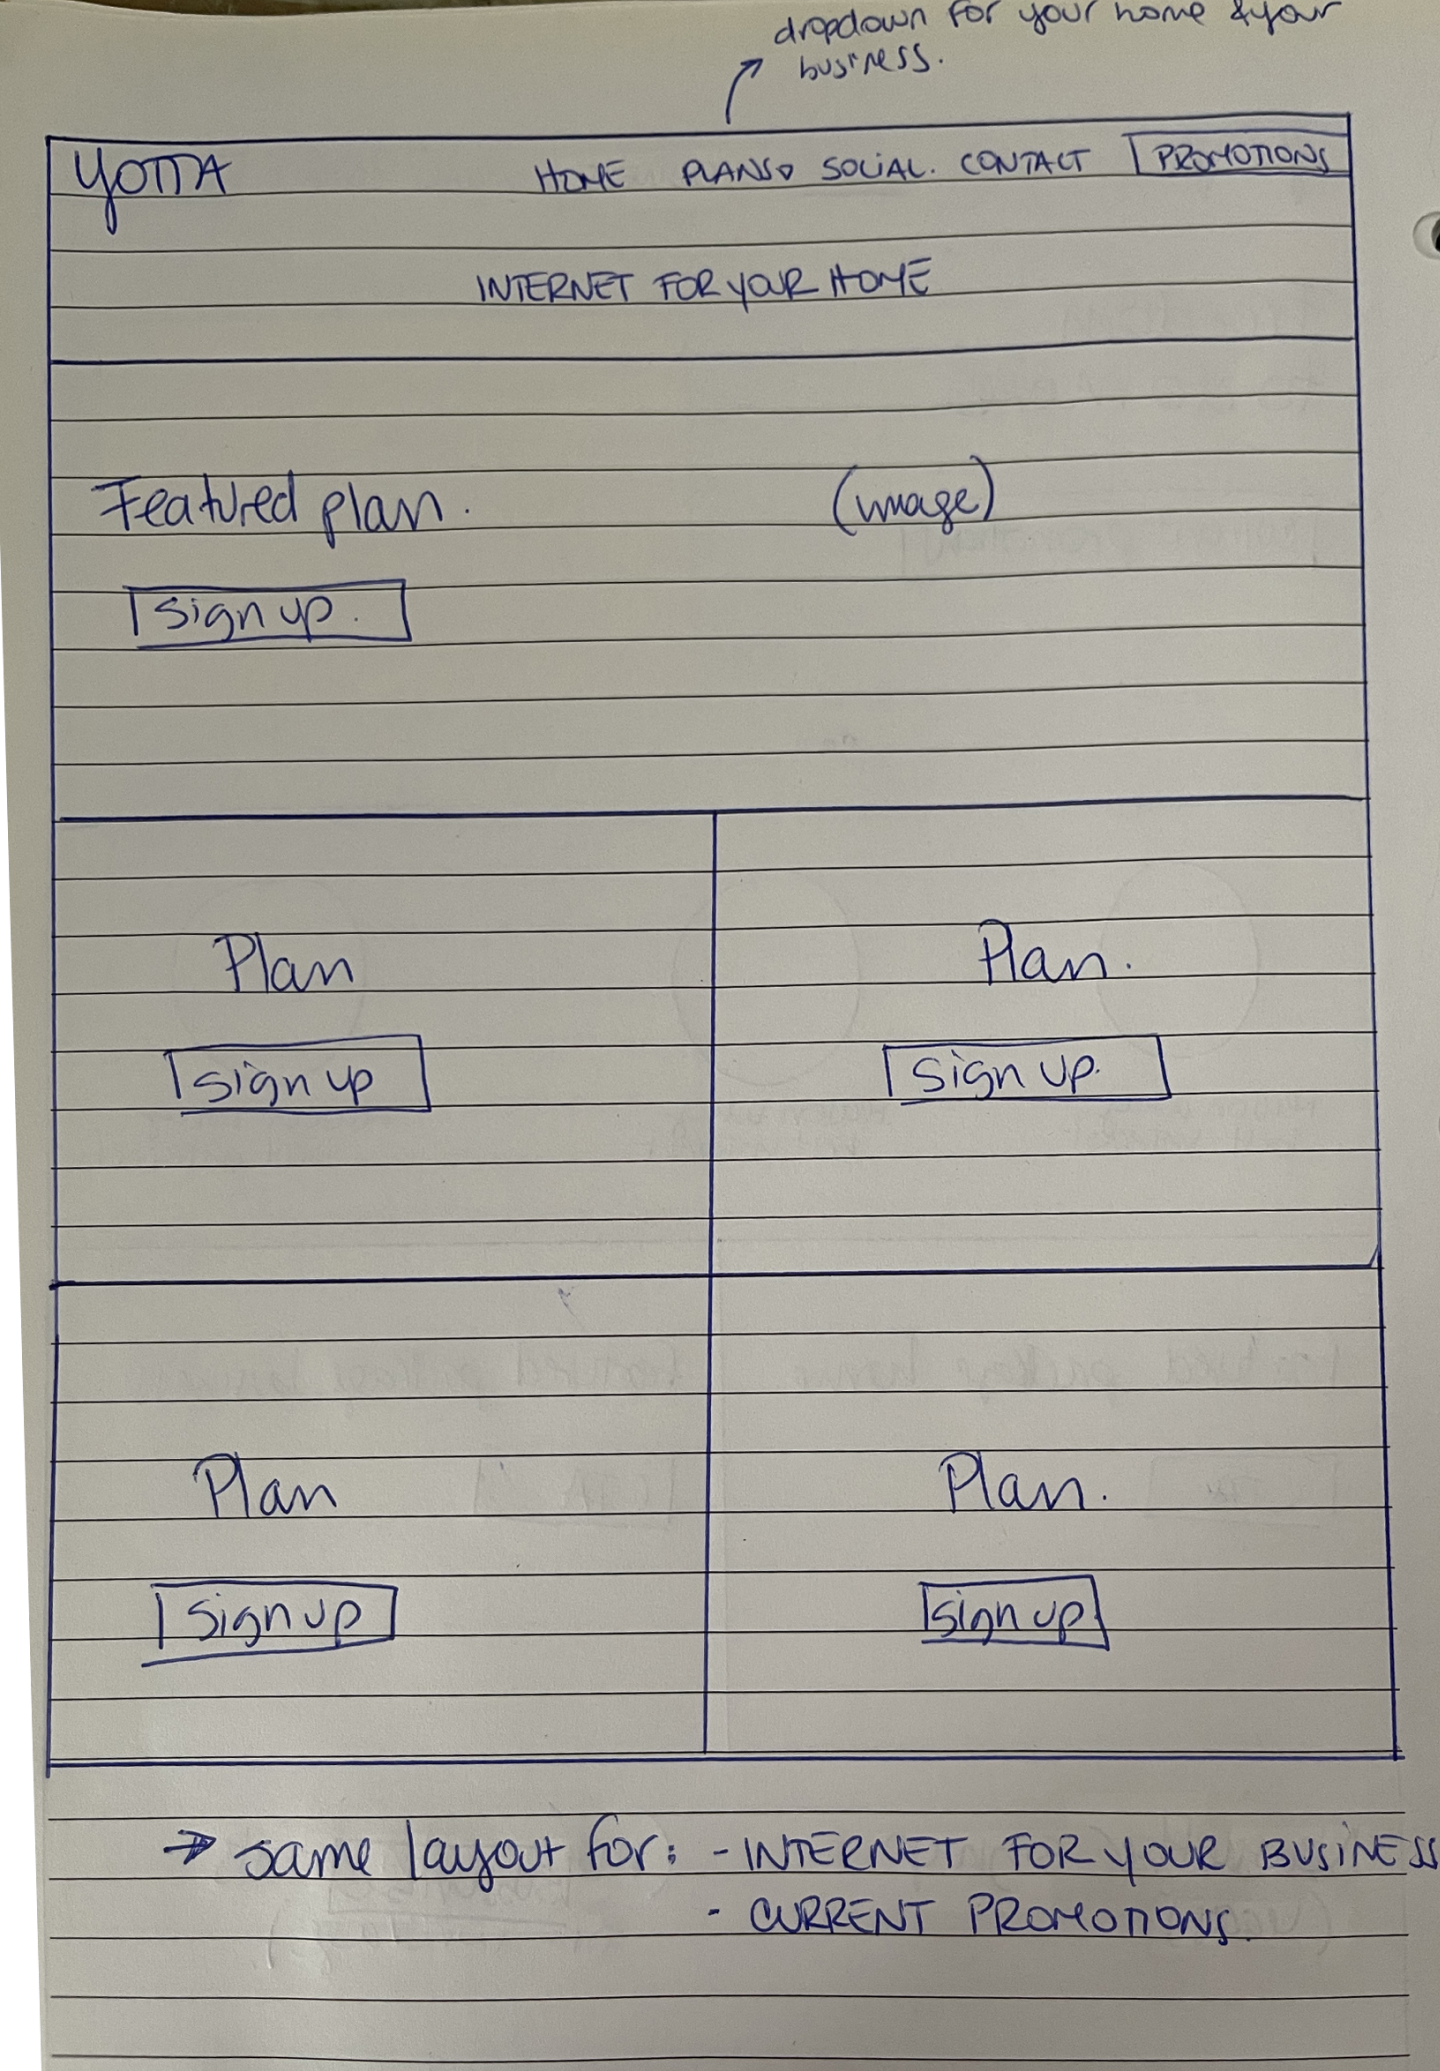 dropdown for your home & your
business.
YOTTA HOME PLANS SOCIAL. CONTACT PROMOTIONS
INTERNET FOR YOUR HOME
Featured plan. (image)
sign up.
Plan Plan.
sign up sign up.
Plan Plan.
sign up sign up
→ same layout for: - INTERNET FOR YOUR BUSINESS
- CURRENT PROMOTIONS.